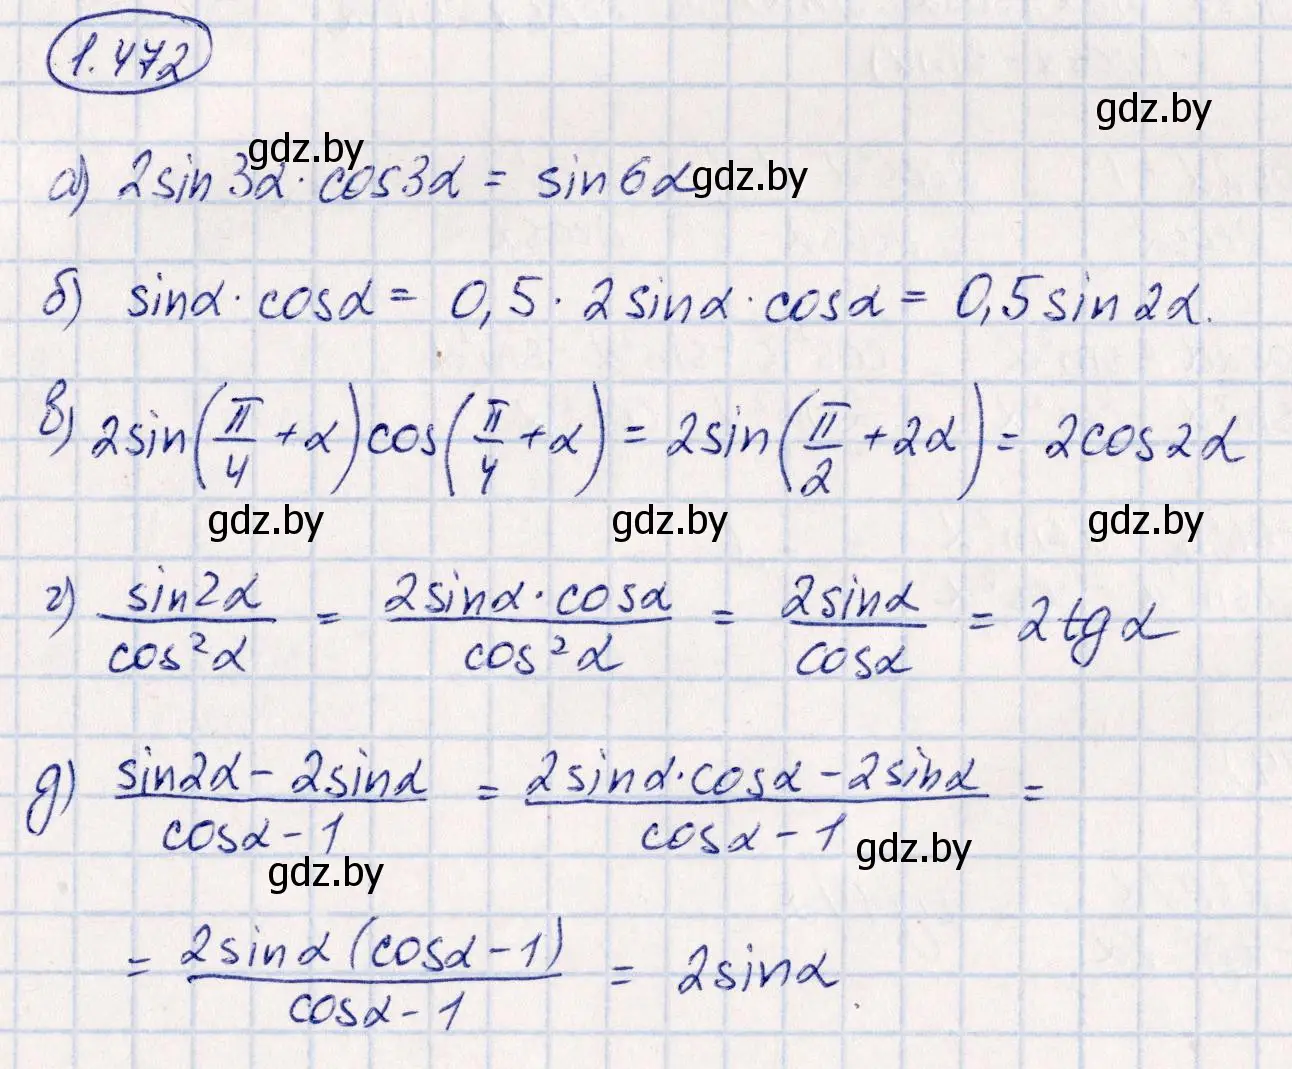 1.472
gdz.by
gdz.by
а) 2sin3α · cos3α = sin6α gdz.by
б) sinα · cosα = 0,5 · 2sinα · cosα = 0,5sin2α.
в) 2sin(π/4 + α)cos(π/4 + α) = 2sin(π/2 + 2α) = 2cos2α
gdz.by gdz.by gdz.by
г) sin2α/cos²α = 2sinα · cosα/cos²α = 2sinα/cosα = 2tgα
д) (sin2α - 2sinα)/(cosα - 1) = (2sinα · cosα - 2sinα)/(cosα - 1) =
gdz.by
gdz.by
= 2sinα(cosα - 1)/(cosα - 1) = 2sinα.